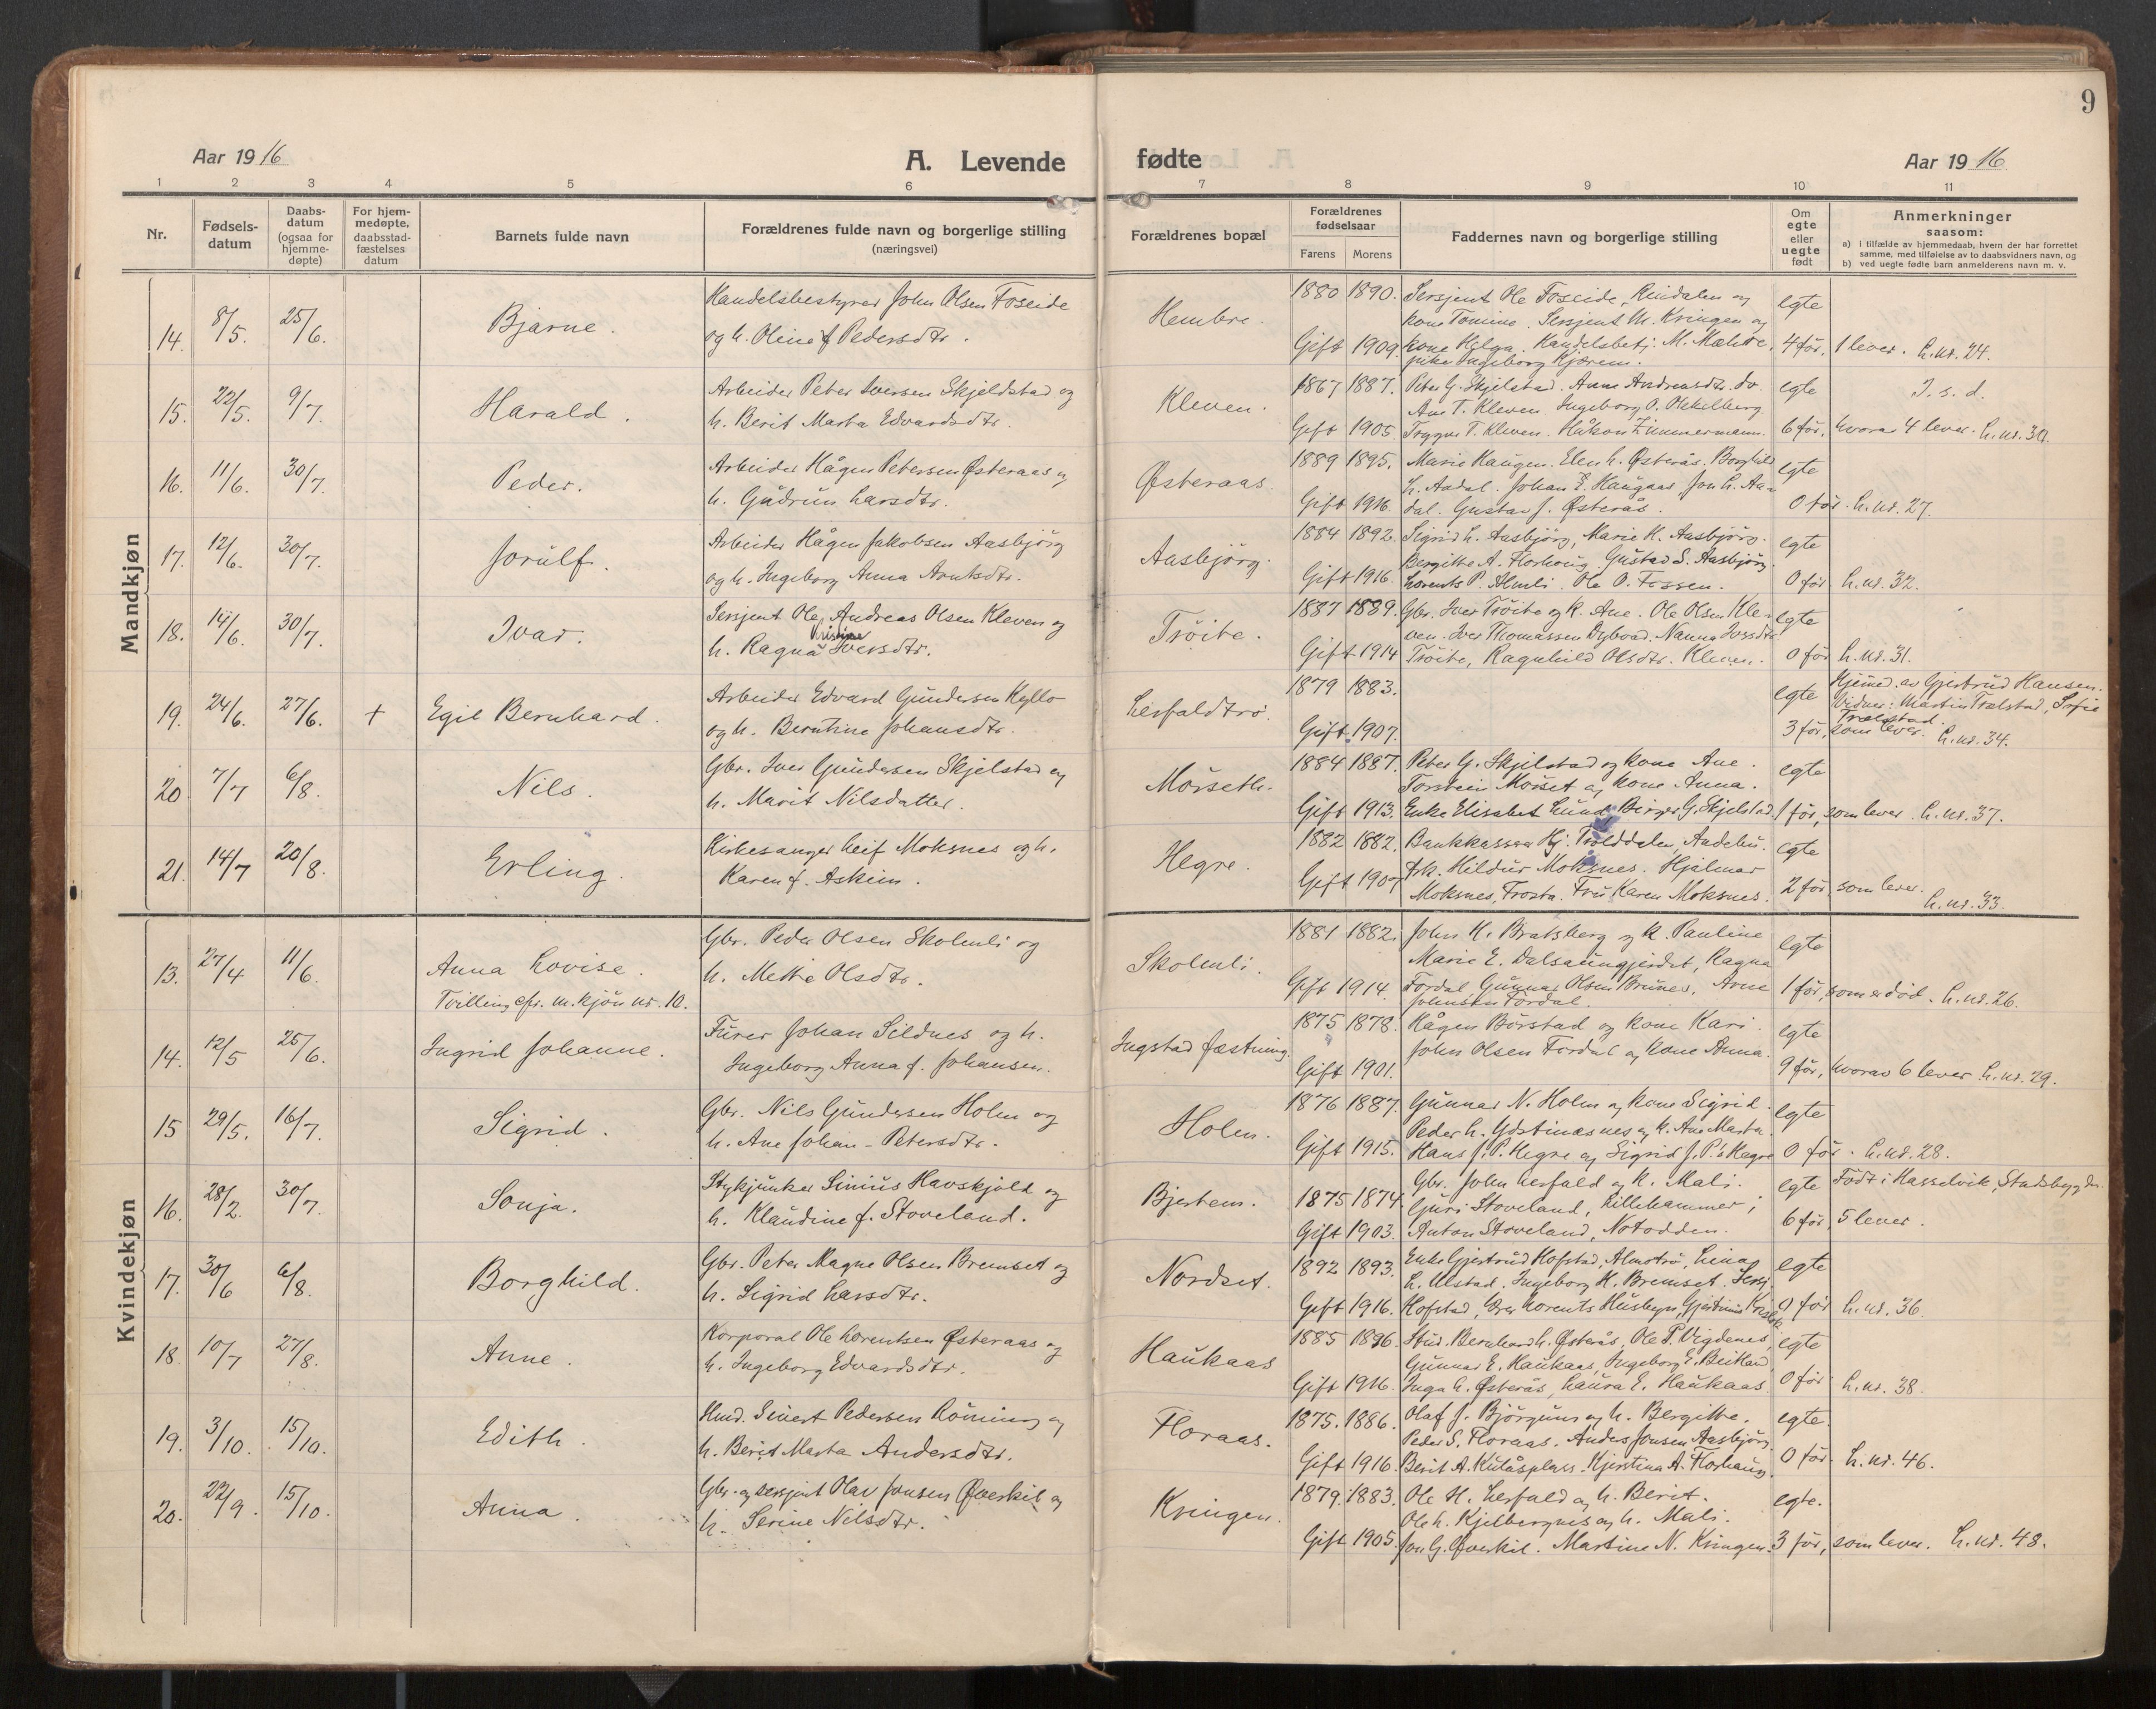 9
Aar 1916
A. Levende fødte
Aar 1916
1 2 3 4 5 6 7 8 9 10 11
Nr.
Fødsels-
datum
Daabs-
datum
(ogsaa for
hjemme-
døpte)
For hjem-
medøpte,
daabsstad-
fæstelses
datum
Barnets fulde navn
Forældrenes fulde navn og borgerlige stilling
(næringsvei)
Forældrenes bopæl
Forældrenes
fødselsaar
Farens Morens
Faddernes navn og borgerlige stilling
Om
egte
eller
uegte
født
Anmerkninger
saasom:
a) i tilfælde av hjemmedaab, hvem der har forrettet
samme, med tilføielse av to daabsvidners navn, og
b) ved uegte fødte barn anmelderens navn m. v.
Mandkjøn
14. 8/5. 25/6. Bjarne.
Handelsbestyrer John Olsen Foseide
og h. Oline f Pedersdtr.
Hembre.
1880 1890. Gift 1909.
Sersjent Ole Foseide, Rindalen og
kone Tomine. Sersjent M. Kringen og
kone Helga. Handelsbetj. M. Mæhre,
pike Ingeborg Kjæren.
egte
4 før, 1 lever. L.nr. 24.
15. 22/5. 9/7. Harald.
Arbeider Peter Iversen Skjeldstad og
h. Berit Marta Edvardsdtr.
Kleven.
1867 1887. Gift 1905.
Peter G. Skjelstad. Anne Andreasdtr. do.
Ane T. Kleven. Ingeborg O.
Trygve T. Kleven. Håkon Zimmermann.
egte T. s. d.
6 før, hvorav 4 lever. L.nr. 30.
16. 11/6. 30/7. Peder.
Arbeider Hågen Petersen Østeraas og
h. Gudrun Larsdtr.
Østeraas.
1889 1895. Gift 1916.
Marie Haugen. Elen h. Østerås. Borghild
L. Aadal. Johan E. Haugaas, Jon L. Aa-
dal. Gustav J. Østerås.
egte
0 før. L.nr. 27.
17. 12/6. 30/7. Jorulf.
Arbeider Hågen Jakobsen Aasbjørg
og h. Ingeborg Anna Arntsdtr.
Aasbjørg.
1884 1892. Gift 1916.
Sigrid L. Aasbjørg, Marie K. Aasbjørg.
Bergitte A. Florhoug. Gustad S. Aasbjørg.
Lorents P. Almli. Ole O. Fossen.
egte
0 før. L.nr. 32.
18. 14/6. 30/7. Ivar.
Sersjent Ole Andreas Olsen Kleven og
Kristine
h. Ragna Iversdtr.
Trøite.
1887 1889. Gift 1914
Gbr. Iver Trøite og k. Ane. Ole Olsen Kle-
ven. Iver Thomassen Dybvad. Nanna Iversdtr.
Trøite, Ragnhild Olsdtr. Kleven.
egte
0 før L.nr. 31.
19. 24/6. 27/6. + Egil Bernhard.
Arbeider Edvard Gundersen Kyllo
og h. Berntine Johansdtr.
Lerfaldtrø.
1879 1883. Gift 1907.
egte Hjemed. av Gjertrud Hansen.
Vidner: Martin Trælstad, Sofie
Trælstad.
3 før, som lever. L.nr. 34.
20 7/7 6/8. Nils.
Gbr. Iver Gundersen Skjelstad og
h. Marit Nilsdatter.
Mørseth.
1884 1887. Gift 1913.
Peter G. Skjelstad og kone Ane.
Torstein Mørset og kone Anna.
Enke Elisabet Lund, Birger G. Skjelstad.
egte
1 før, som lever. L.nr. 37.
21. 14/7 20/8. Erling.
Kirkesanger Leif Moksnes og h.
Karen f. Askim.
Hegre.
1882 1882. Gift 1907
Bankkasserer Hj. Trolddalen, Andebu.
Frk. Hildur Moksnes. Hjalmar
Moksnes, Frosta. Fru Karen Moksnes.
egte
2 før, som lever.
L.nr. 33.
Kvindekjøn
13. 27/4 11/6. Anna Lovise.
Tvilling cfr. m.kjøn nr. 10.
Gbr. Peder Olsen Skolmli og
h. Mette Olsdtr.
Skolmli.
1881 1882. Gift 1914.
John K. Bratsberg og k. Pauline
Marie E. Dalsaunggjerdet, Ragna
Fordal, Gunnar Olsen Brunes, Arne
Johnsen Fordal.
egte
1 før, som er død. L.nr. 26.
14. 12/5 25/6. Ingrid Johanne.
Furer Johan Sildnes og h.
Ingeborg Anna f. Johansen.
Ingstad fæstning.
1875 1878. Gift 1901.
Hågen Børstad og kone Kari.
John Olsen Fordal og kone Anna.
egte
9 før, hvorav 6 lever. L.nr. 29.
15 29/5. 16/7. Sigrid.
Gbr. Nils Gundersen Holm og
h. Ane Johan-Petersdtr.
Holm.
1876 1887. Gift 1915.
Gunnar N. Holm og kone Sigrid.
Peder L. og k. Ane Marta.
Hans J. P. Hegre og Sigrid J. P.'s Hegre
egte
0 før. L.nr. 28.
16. 28/2. 30/7. Sonja.
Stykjunker Sinius Havskjold og
h. Klaudine f. Stoveland.
Bjertem.
1875 1874. Gift 1903.
Gbr. John Lerfald og k. Mali.
Guri Stoveland, Lillehammer;
Anton Stoveland, Notodden.
egte Født i Hasselvik, Stadsbygden.
6 før, 5 lever.
17. 30/6 6/8. Borghild.
Gbr. Peter Magne Olsen Bremset og
h. Sigrid Larsdtr.
Nordset.
1892 1893. Gift 1916.
Enke Gjertrud Hofstad, Almotrø, Lina
L. Ulstad. Ingeborg H. Bremset. Sersj.
Hofstad, Lorents Husbyn, Gjertine
egte
0 før L.nr. 36
18. 10/7 27/8. Anne.
Korporal Ole Lorentsen Østeraas og
h. Ingeborg Edvardsdtr.
Haukaas
1885 1896. Gift 1916.
Stud. Bernhard L. Østerås, Ole P. Vigdenes,
Gunnar E. Haukaas, Ingeborg E. Beitland
Inga L. Østerås, Laura E. Haukaas.
egte
0 før L.nr. 38.
19. 3/10. 15/10. Edith.
Hmd. Sivert Pedersen Rønning og
h. Berit Marta Andersdtr.
Floraas.
1875. 1886. Gift 1916.
Olaf J. Bjørgum og h. Bergitte.
Peder S. Floraas. Anders Jonsen Aasbjørg.
Berit A. Kulåsplass. Kjerstina A. Florhaug.
egte.
0 før. L.nr. 46.
20. 22/9. 15/10. Anna.
Gbr. og sersjent Olav Jonsen Øverkil og
h. Serine Nilsdtr.
Kringen.
1879. 1883. Gift 1905.
Ole H. Lerfald og h. Berit.
Ole h. Kjelbergnes og h. Mali.
Jon G. Øverkil. Martine N. Kringen.
egte.
3 før, som lever. L.nr. 48.